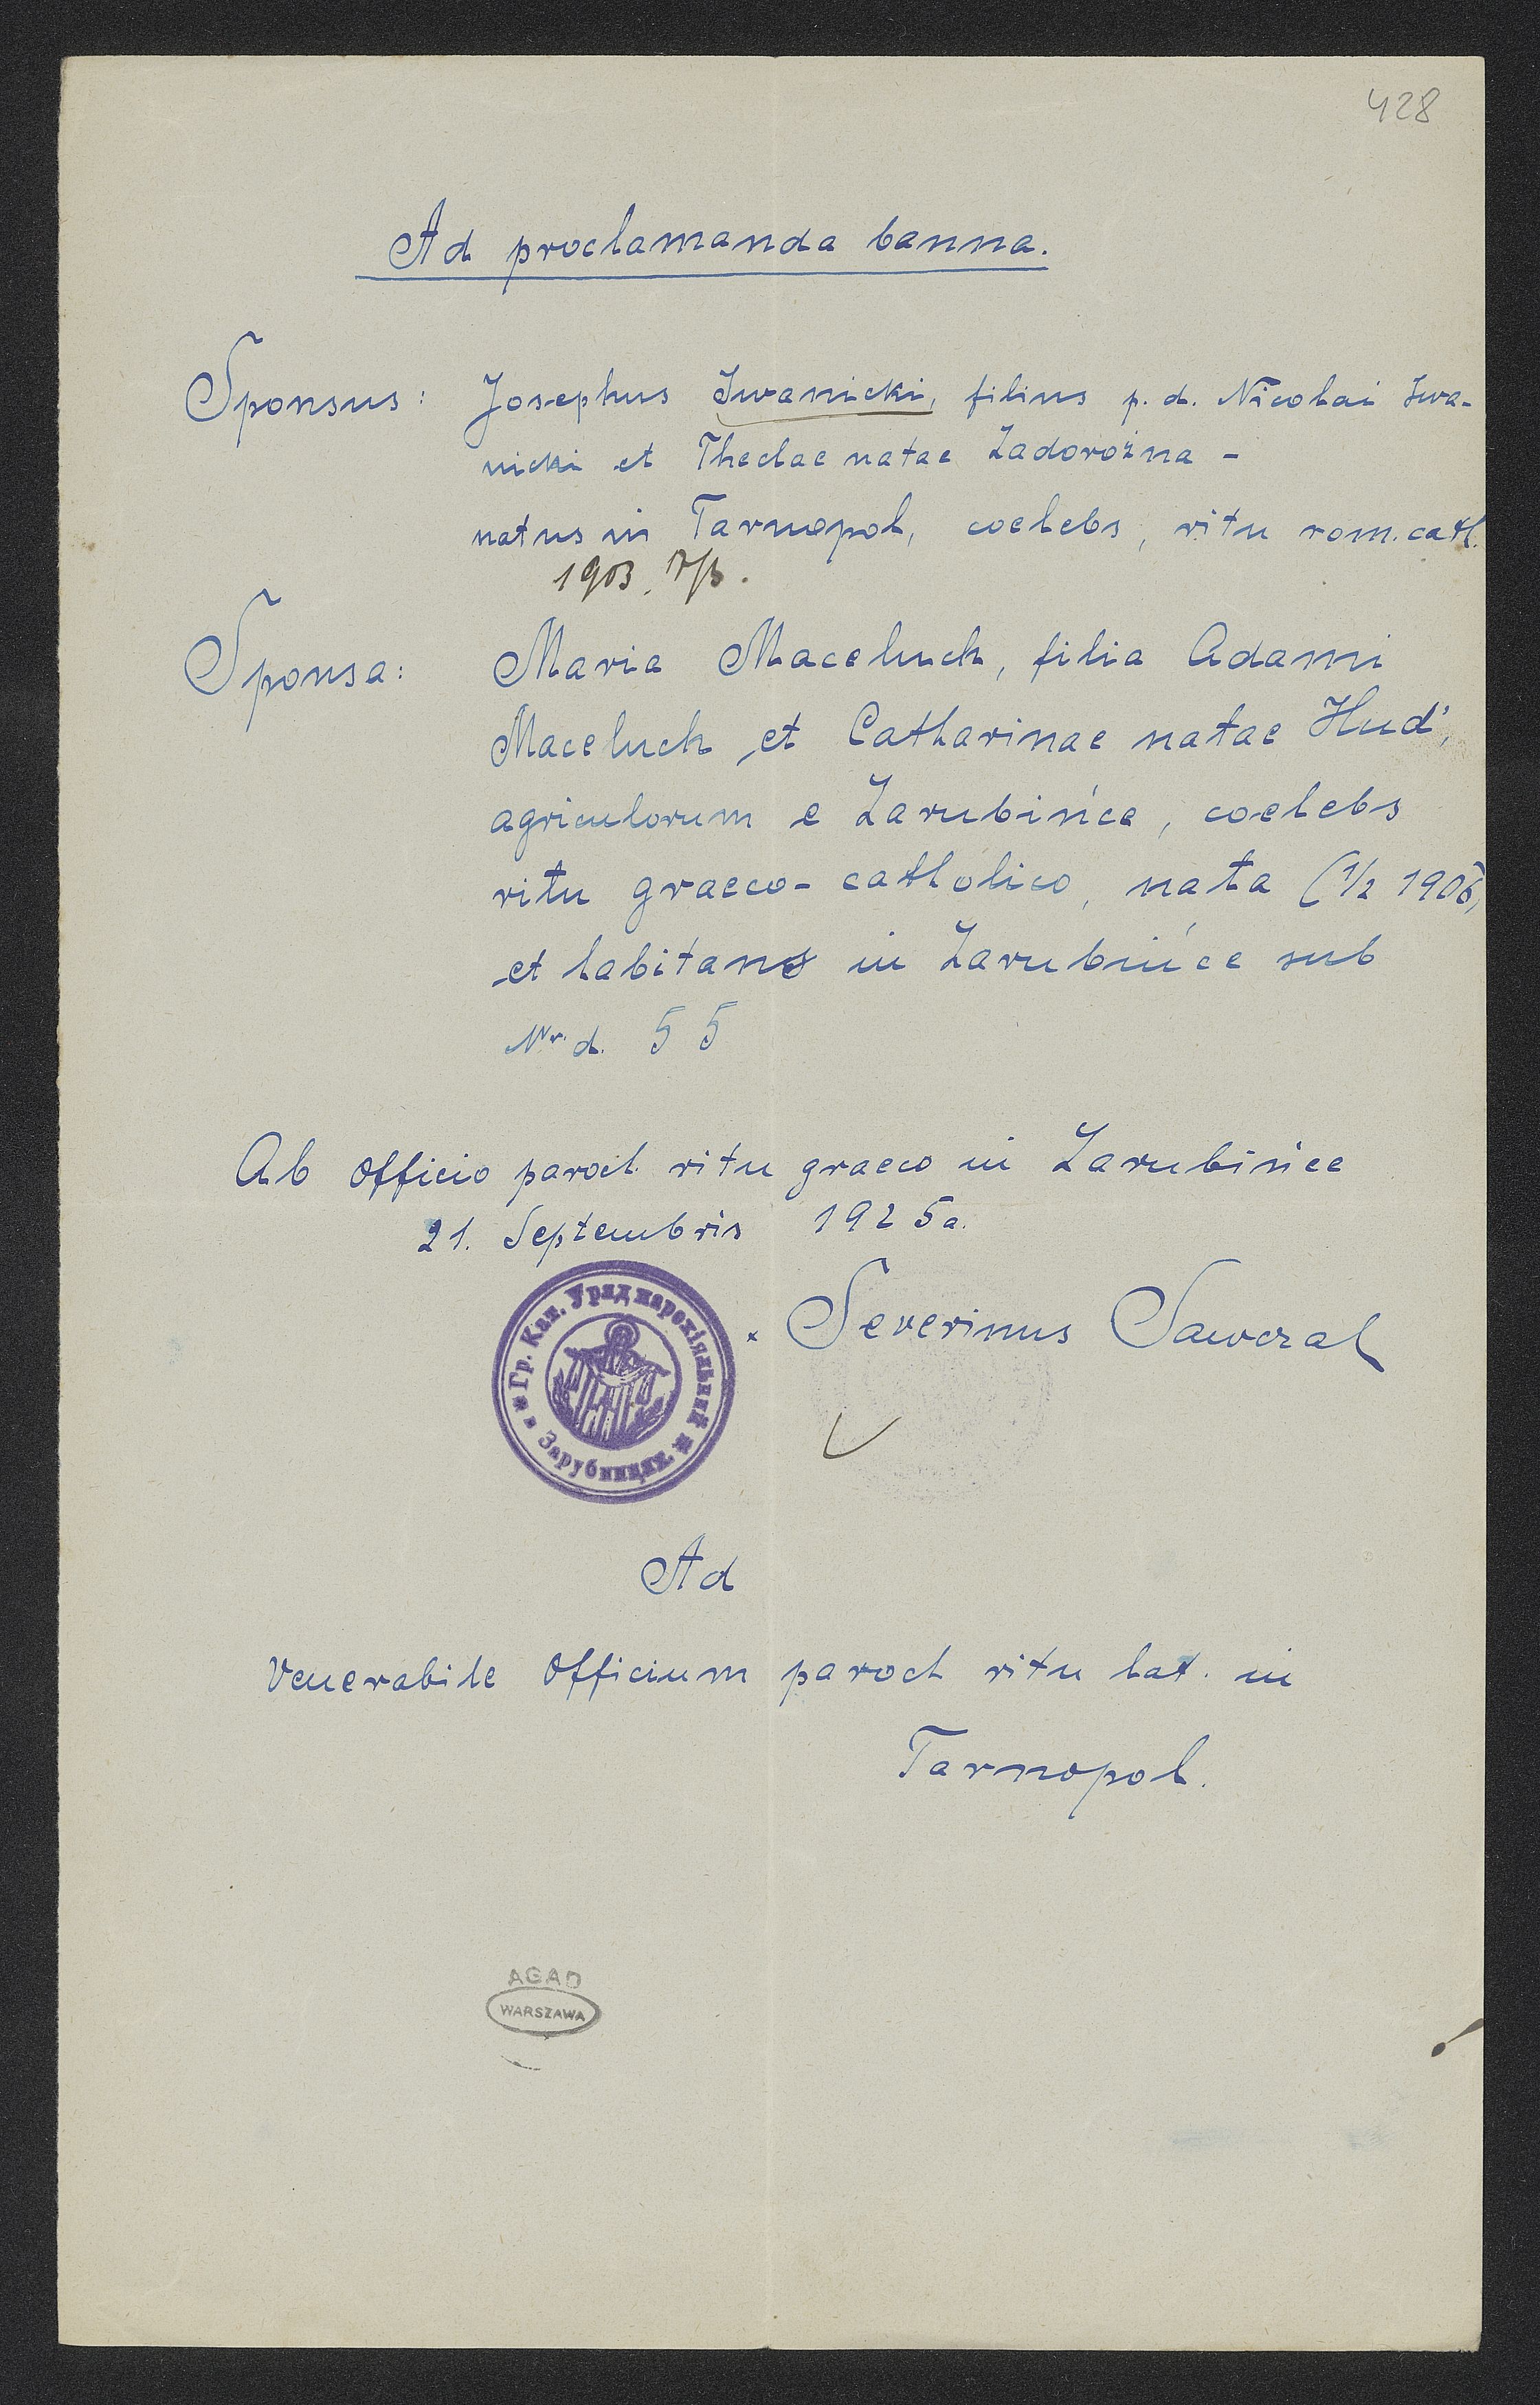 428
Ad proclamanda banna.
Sponsus: Josephus Iwanicki, filius p. d. Nicolai Iwa-
nicki et Theclae natae Zadorożna -
natus in Tarnopol, coelebs, ritu rom. cath.
1903.
Sponsa: Maria Maceluch, filia Adami
Maceluch et Catharinae natae Hud',
agricolorum e Zarubińce, coelebs
ritu graeco-catholico, nata (1/2 1906)
et habitans in Zarubińce sub
Nr. d. 55
Ab officio paroch. ritu graeco in Zarubińce
21. Septembris 1925 a.
Гр. Кат. Уряд парохіяльний в Зарубинцях
x Severinus Sawczal
Ad
Venerabile Officium paroch ritu lat. in
Tarnopol.
AGAD
WARSZAWA